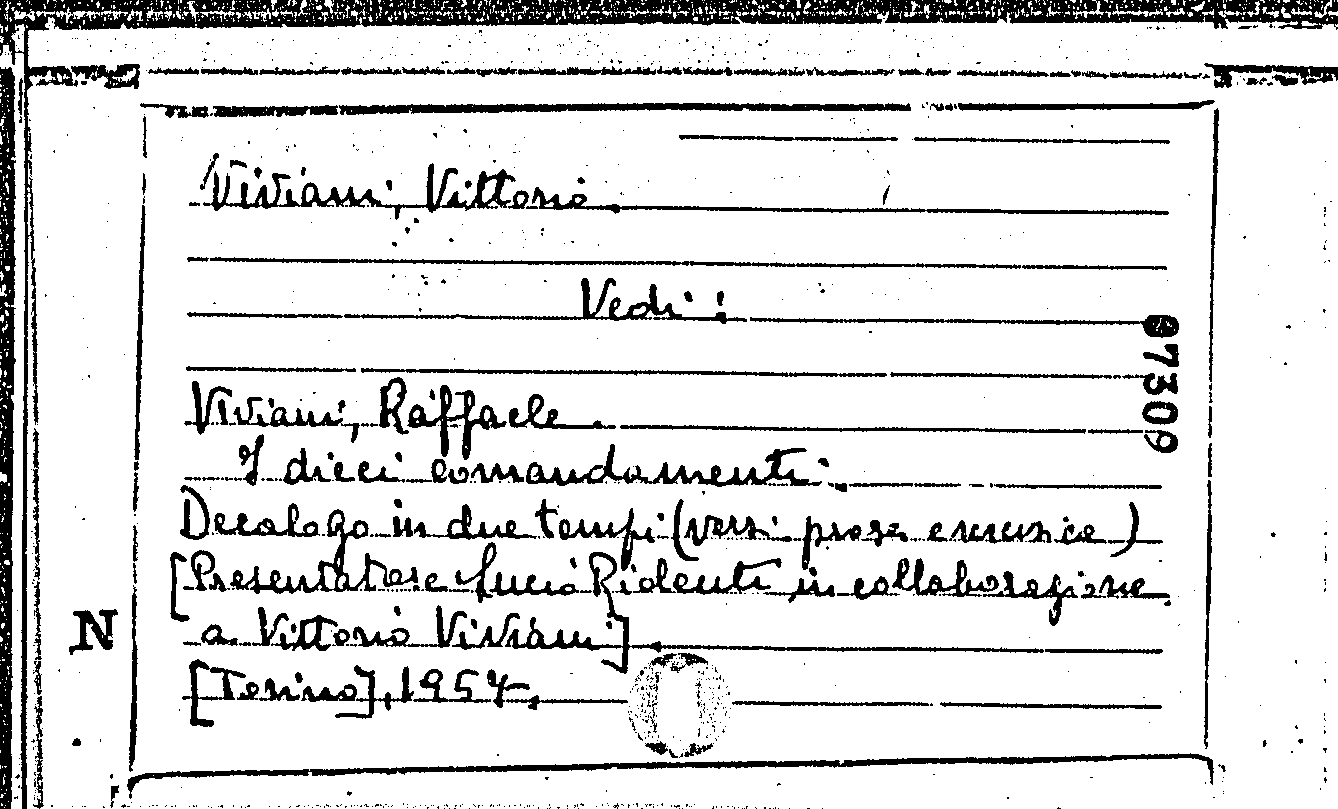 Viviani, Vittorio.
Vedi:
07309
Viviani, Raffaele.
I dieci comandamenti.
Decalogo in due tempi (versi prosa e musica)
[Presentatore Lucio Ridenti in collaborazione
a Vittorio Viviani].
N
[Torino], 1957.